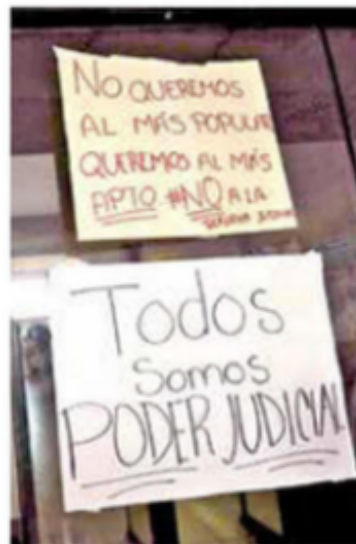 NO QUEREMOS
AL MÁS POPULAR
QUEREMOS AL MÁS
APTO #NO A LA
Todos
Somos
PODER JUDICIAL